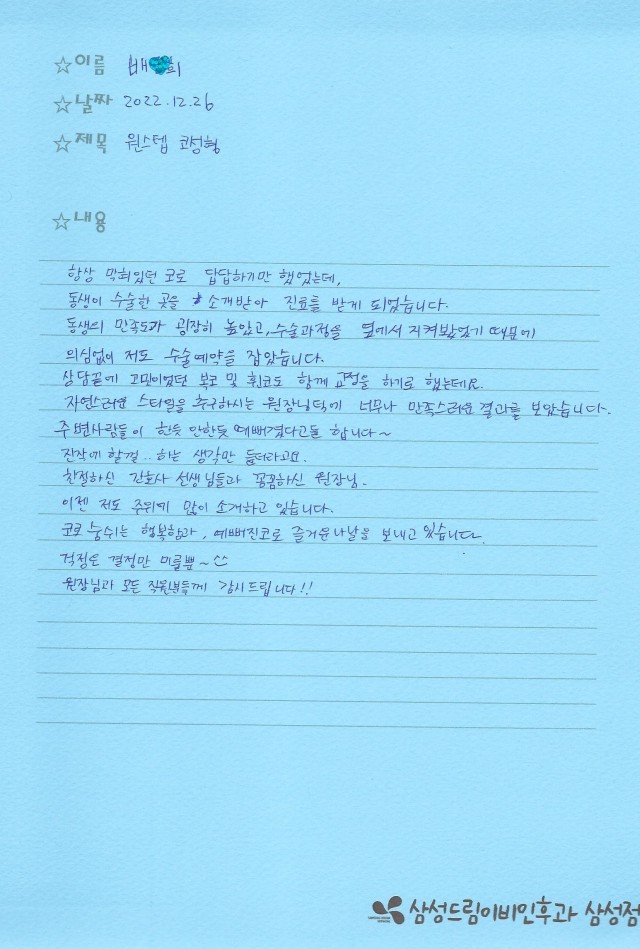 ☆이름 배 희
☆날짜 2022.12.26
☆제목 원스텝 코성형
☆내용
항상 막혀있던 코로 답답하기만 했었는데,
동생이 수술한 곳을 소개받아 진료를 받게 되었습니다.
동생의 만족도가 굉장히 높았고, 수술과정을 옆에서 지켜봤었기 때문에
의심없이 저도 수술예약을 잡았습니다.
상담끝에 고민이었던 복코 및 휜코도 함께 교정을 하기로 했는데요.
자연스러운 스타일을 추구하시는 원장님덕에 너무나 만족스러운 결과를 보았습니다.
주변사람들이 한듯 안한듯 예뻐졌다고들 합니다~
진작에 할껄.. 하는 생각만 들더라고요.
친절하신 간호사 선생님들과 꼼꼼하신 원장님.
이젠 저도 주위에 많이 소개하고 있습니다.
코로 숨쉬는 행복함과, 예뻐진코로 즐거운나날을 보내고 있습니다.
걱정은 결정만 미룰뿐~
원장님과 모든 직원분들께 감사드립니다!!
삼성드림이비인후과 삼성점